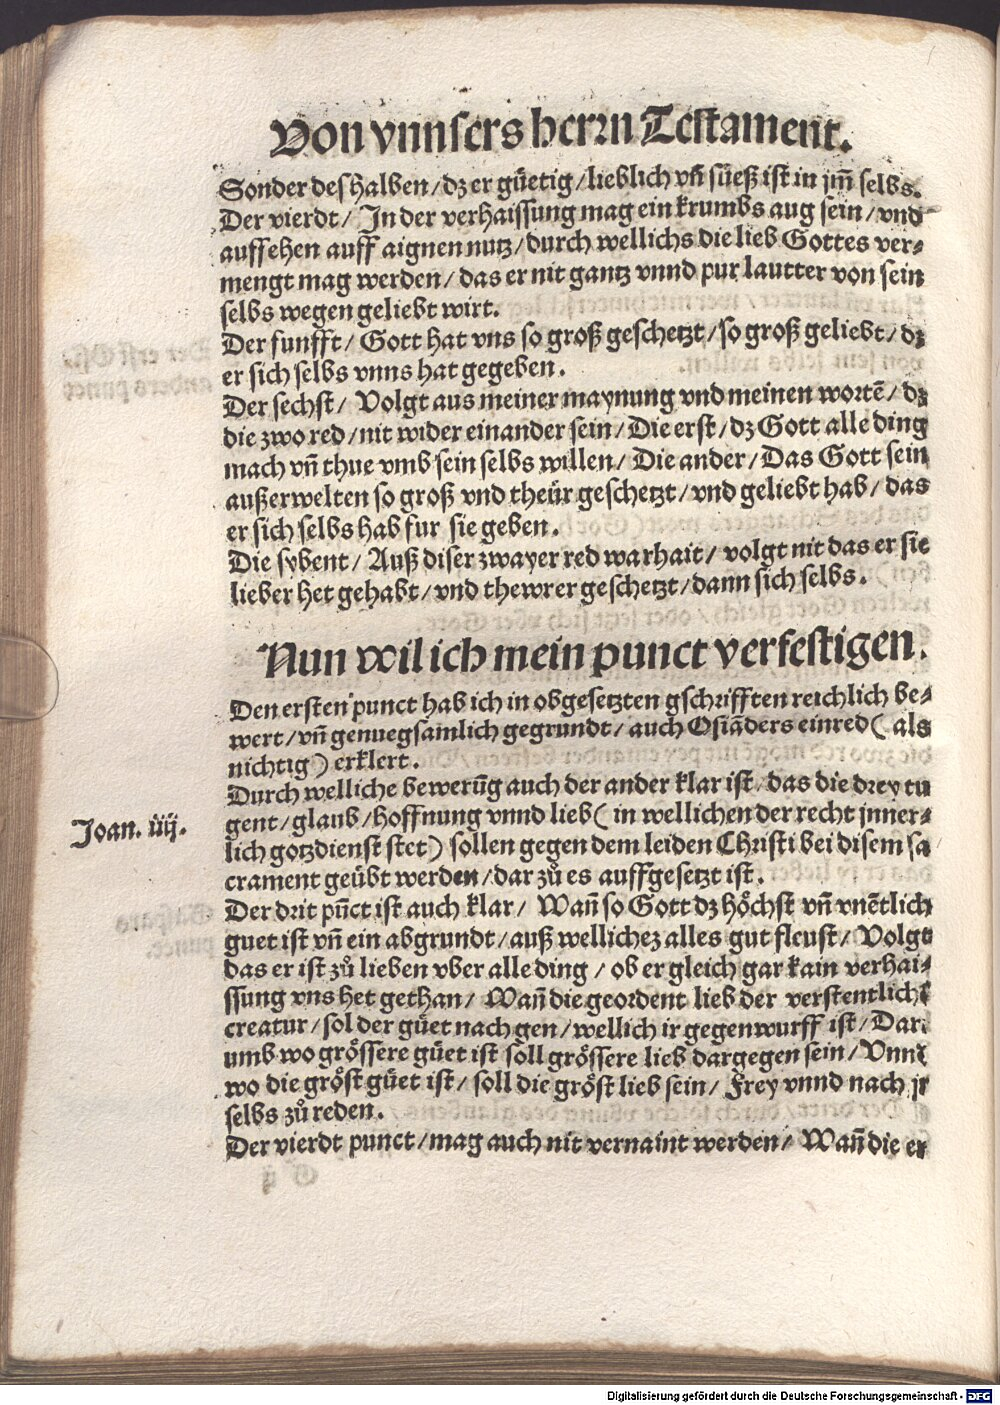 Von vnnsers herrn Testament.
Sonder deshalben / dz er güetig / lieblich vñ süeß ist in jm̄ selbs.
Der vierdt / In der verhaissung mag ein krumbs aug sein / vnd
auffsehen auff aignen nutz / durch wellichs die lieb Gottes ver⸗
mengt mag werden / das er nit gantz vnnd pur lautter von sein
selbs wegen geliebt wirt.
Der funfft / Gott hat vns so groß geschetzt / so groß geliebt / dz
er sich selbs vnns hat gegeben.
Der sechst / Volgt aus meiner maynung vnd meinen wortē / dz
die zwo red / nit wider einander sein / Die erst / dz Gott alle ding
mach vñ thue vmb sein selbs willen / Die ander / Das Gott sein
außerwelten so groß vnd theür geschetzt / vnd geliebt hab / das
er sich selbs hab fur sie geben.
Die sybent / Auß diser zwayer red warhait / volgt nit das er sie
lieber het gehabt / vnd thewrer geschetzt / dann sich selbs.
Nun wil ich mein punct verfestigen.
Den ersten punct hab ich in obgesetzten gschrifften reichlich be⸗
wert / vñ genuegsamlich gegrundt / auch Osiāders einred ( als
nichtig ) erklert.
Durch welliche bewerūg auch der ander klar ist / das die drey tu
gent / glaub / hoffnung vnnd lieb ( in wellichen der recht jnner⸗
lich gotzdienst stet ) sollen gegen dem leiden Christi bei disem sa
crament geübt werden / dar zů es auffgesetzt ist.
Joan. iiij.
Der drit pūct ist auch klar / Wañ so Gott dz höchst vñ vnētlich
guet ist vñ ein abgrundt / auß wellichez alles gut fleust / Volgt
das er ist zů lieben vber alle ding / ob er gleich gar kain verhai⸗
ssung vns het gethan / Wañ die geordent lieb der verstentlichē
creatur / sol der güet nach gen / wellich ir gegenwurff ist / Dar⸗
umb wo grössere güet ist soll grössere lieb dargegen sein / Vnnd
wo die gröst güet ist / soll die gröst lieb sein / Frey vnnd nach jr
selbs zů reden.
Der vierdt punct / mag auch nit vernaint werden / Wañ die er
Digitalisierung gefördert durch die Deutsche Forschungsgemeinschaft - DFG